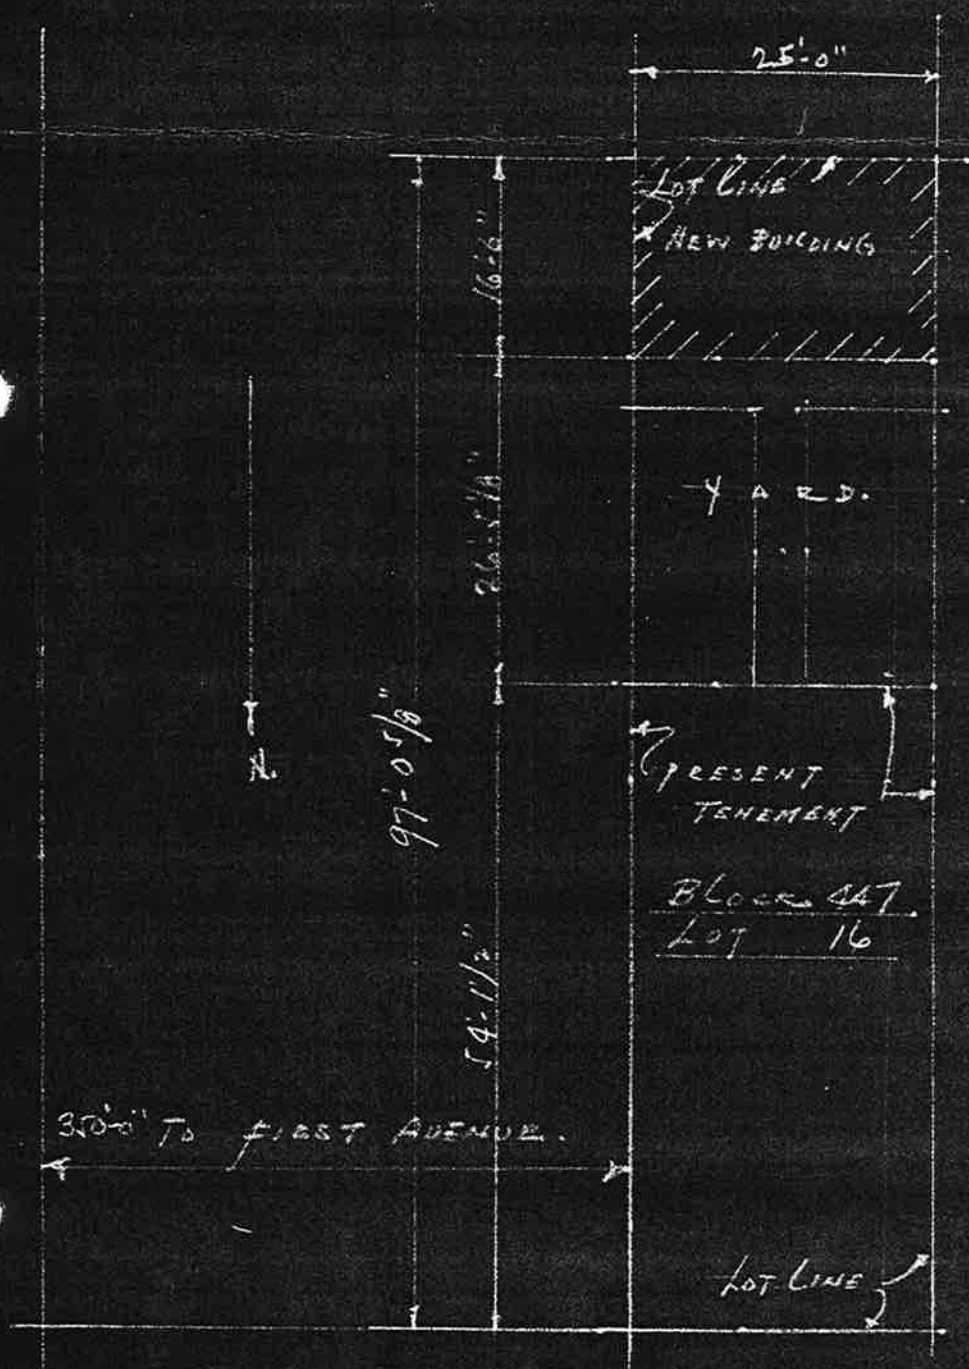 25'-0"
LOT LINE
NEW BUILDING
16'-6"
26'-5 1/8"
YARD.
N.
97'-0 5/8"
PRESENT
TENEMENT
BLOCK 447
LOT 16
54'-1 1/2"
350'-0" TO FIRST AVENUE.
LOT LINE